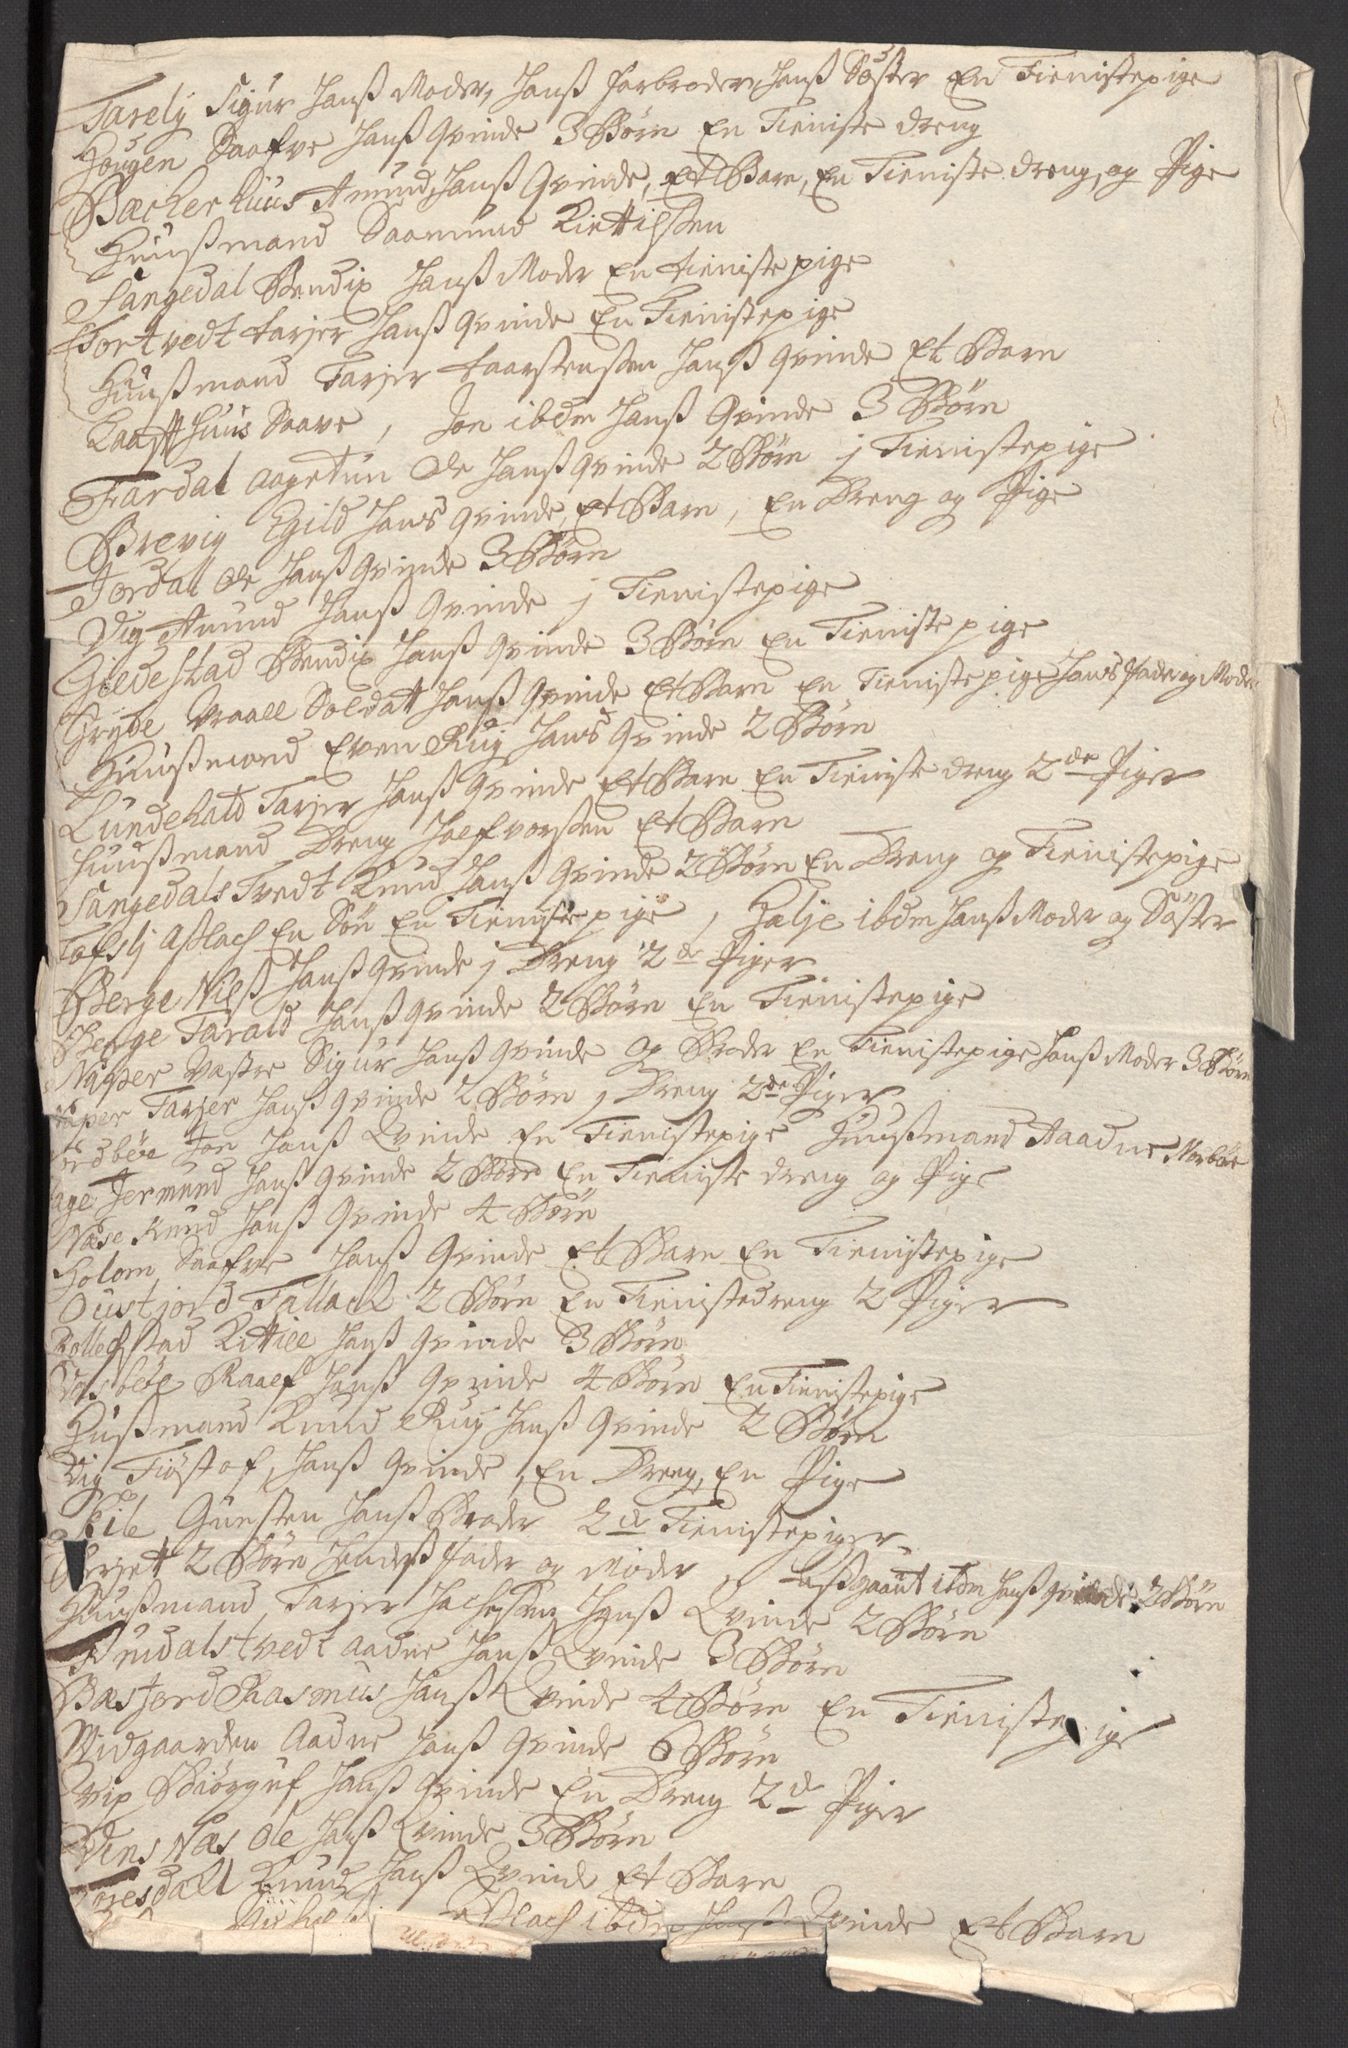 Tarelj Sigur Hanß Moder, Hanß farbroder, Hanß Søster En Tienistepige
Hougen Saafve Hanß Qvinde 3 Børn En Tieniste dreng
Bacherhuus Amund, Hanß Qvinde, et Barn, En Tieniste dreng, og Pige
Huusmand Saamund Kiettilßen
Sangedal Bendix Hanß Moder En tienistepige
Tortvedt tarjer Hanß Qvinde En Tienistepige
Huusmand Tarjer taarstenßen Hanß Qvinde Et Barn
Saave, Jon ibdm Hanß Qvinde 3 Børn
Fardal aagetun Ole Hanß Qvinde 2 Børn j Tienistepige
Brevig Egild Hans Qvinde, et Barn, En Dreng og Pige
Jordal Ole Hanß Qvinde 3 Børn
Vig Amund Hanß Qvinde j Tienistepige
Gieldestad Bendix Hanß Qvinde 3 Børn En Tienistepige
Vraall Soldat Hanß Qvinde Et Barn En Tienistepige Hans Fader og Moder
Huusmand Even Ruy Hans Qvinde 2 Børn
Lundehald Tarjer Hanß Qvinde Et Barn En Tieniste dreng 2de Piger
Huusmand Dreng Halfvorßen Et Barn
Sangedals Tvedt Knud Hanß Qvinde 2 Børn En Dreng og Tienistepige
Tofslj Aslach En Søn En Tienistepige, Halje ibdm Hanß Moder og Søster
Berge Nilß Hanß Qvinde j Dreng 2de Piger
Berge Tarald Hanß Qvinde 2 Børn En Tienistepige
Naper Vastre Sigur Hanß Qvinde og Broder En Tienistepige Hanß Moder 3 Børn
Naper Tarjer Hanß Qvinde 2 Børn j Dreng 2de Piger
Jon Hanß Qvinde En Tienistepige Huusmand Aadne Norbøe
Jermund Hanß Qvinde 2 Børn En Tieniste dreng og Pige
Næse Knud Hanß Qvinde 4 Børn
Holom Saafve Hanß Qvinde et Barn En Tienistepige
Oustjord Tallach 2 Børn En Tienistedreng 2 Piger
Kittill Hanß Qvinde 3 Børn
Raalf Hanß Qvinde 4 Børn En Tienistepige
Huusmand Knud Ruy Hanß Qvinde 2 Børn
Vig Tiøstof, Hanß Qvinde, En Dreng, En Pige
Kile Gunsten Hanß Broder 2de Tienistepiger
2 Børn Hendeß Fader og Moder, ibdm Hanß Qvinde 2 Børn
Huusmand Tarjer Hanß Qvinde 2 Børn
aadne Hanß Qvinde 3 Børn
Bastjord Rasmus Hanß Qvinde 4 Børn En Tienistepige
Midgaarden Aadne Hanß Qvinde 6 Børn
Biørguf Hanß Qvinde En Dreng 2de Piger
Næs Ole Hanß Qvinde 3 Børn
Knud Hanß Qvinde Et Barn
Aslach ibdm Hanß Qvinde et Barn